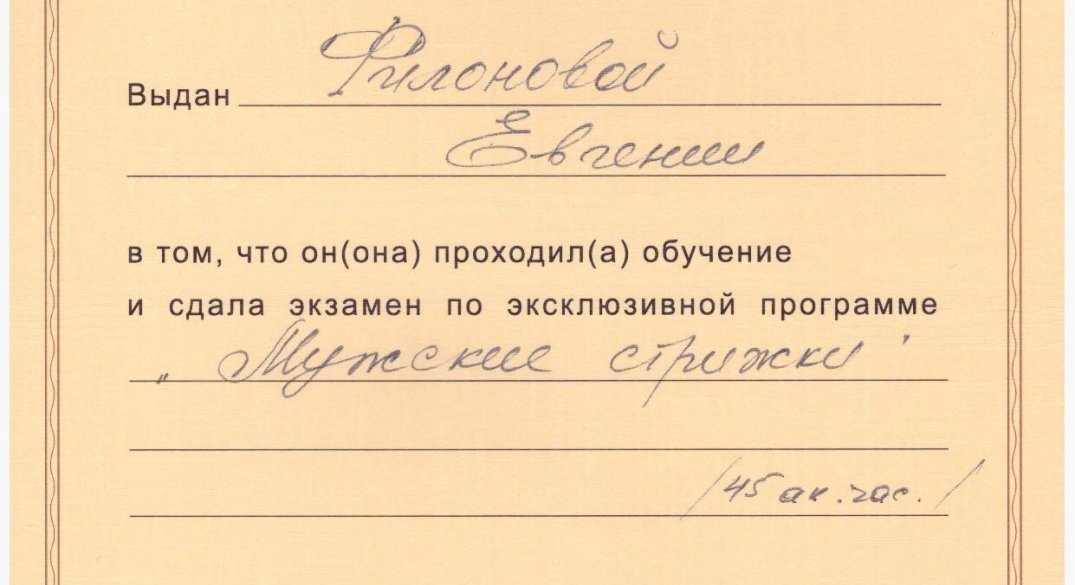 Выдан Филоновой
Евгении
в том, что он(она) проходил(а) обучение
и сдала экзамен по эксклюзивной программе
„Мужские стрижки"
/45 ак.час./